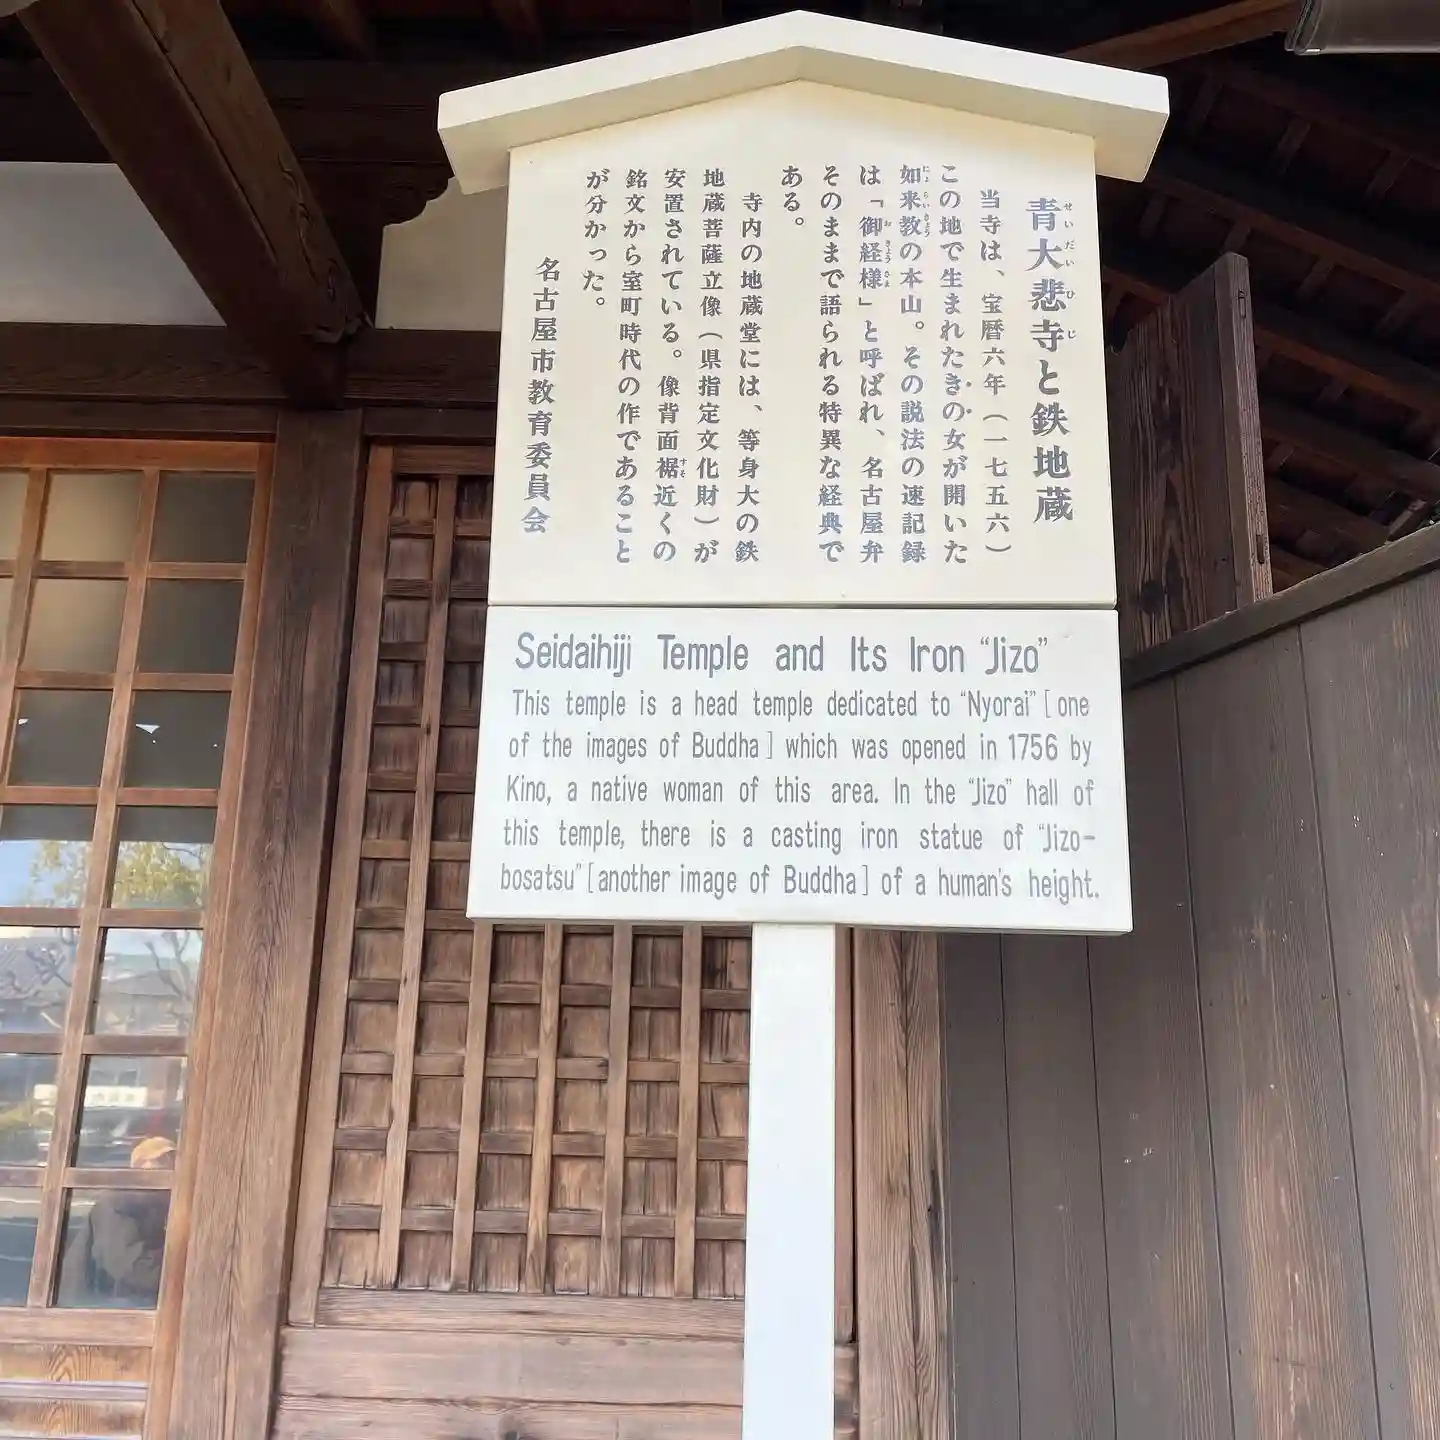 青大悲寺と鉄地蔵
せいだいひじ
当寺は、宝暦六年（一七五六）
この地で生まれたきの女が開いた
如来教の本山。その説法の速記録
にょらいきょう
は「御経様」と呼ばれ、名古屋弁
おきょうさま
そのままで語られる特異な経典で
ある。
寺内の地蔵堂には、等身大の鉄
地蔵菩薩立像（県指定文化財）が
安置されている。像背面裾近くの
すそ
銘文から室町時代の作であること
が分かった。
名古屋市教育委員会
Seidaihiji Temple and Its Iron “Jizo”
This temple is a head temple dedicated to “Nyorai” [one
of the images of Buddha] which was opened in 1756 by
Kino, a native woman of this area. In the “Jizo” hall of
this temple, there is a casting iron statue of “Jizo-
bosatsu” [another image of Buddha] of a human's height.